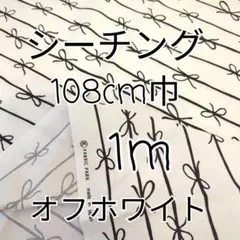 シーチング
108cm巾
1m
オフホワイト
FABRIC PARK